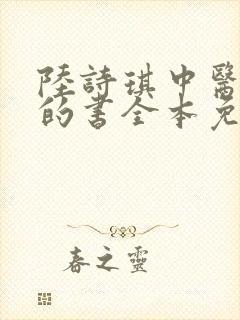 陸詩琪中醫
的書全本免
春之靈